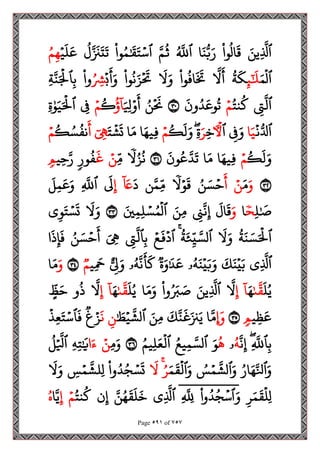 ٱلَّذِينَ قَالُوا۟ رَبُّنَا ٱللَّهُ ثُمَّ ٱسْتَقَٰمُوا۟ تَتَنَزَّلُ عَلَيْهِمُ
ٱلْمَلَٰٓئِكَةُ أَلَّا تَخَافُوا۟ وَلَا تَحْزَنُوا۟ وَأَبْشِرُوا۟ بِٱلْجَنَّةِ
ٱلَّتِى كُنتُمْ تُوعَدُونَ ٢٩ نَحْنُ أَوْلِيَآؤُكُمْ فِى ٱلْحَيَوٰةِ
ٱلدُّنْيَا وَفِى ٱلْأَخِرَةِ وَلَكُمْ فِيهَا مَا تَشْتَهِىٓ أَنفُسُكُمْ
وَلَكُمْ فِيهَا مَا تَدَّعُونَ ٣٠ نُزُلًا مِّنْ غَفُورٍ رَّحِيمٍ
٣١ وَمَنْ أَحْسَنُ قَوْلًا مِّمَّن دَعَآ إِلَى ٱللَّهِ وَعَمِلَ
صَٰلِحًا وَقَالَ إِنَّنِى مِنَ ٱلْمُسْلِمِينَ ٣٢ وَلَا تَسْتَوِى
ٱلْحَسَنَةُ وَلَا ٱلسَّيِّئَةُ ۚ ٱدْفَعْ بِٱلَّتِى هِىَ أَحْسَنُ فَإِذَا
ٱلَّذِى بَيْنَكَ وَبَيْنَهُۥ عَدَٰوَةٌ كَأَنَّهُۥ وَلِىٌّ حَمِيمٌ ٣٣ وَمَا
يُلَقَّىٰهَآ إِلَّا ٱلَّذِينَ صَبَرُوا۟ وَمَا يُلَقَّىٰهَآ إِلَّا ذُو حَظٍّ
عَظِيمٍ ٣٤ وَإِمَّا يَنزَغَنَّكَ مِنَ ٱلشَّيْطَٰنِ نَزْغٌ فَٱسْتَعِذْ
بِٱللَّهِ ۖ إِنَّهُۥ هُوَ ٱلسَّمِيعُ ٱلْعَلِيمُ ٣٥ وَمِنْ ءَايَٰتِهِ ٱلَّيْلُ
وَٱلنَّهَارُ وَٱلشَّمْسُ وَٱلْقَمَرُ ۚ لَا تَسْجُدُوا۟ لِلشَّمْسِ وَلَا
لِلْقَمَرِ وَٱسْجُدُوا۟ لِلَّهِ ٱلَّذِى خَلَقَهُنَّ إِن كُنتُمْ إِيَّاهُ
Page ٥٩١ of ٧٥٧